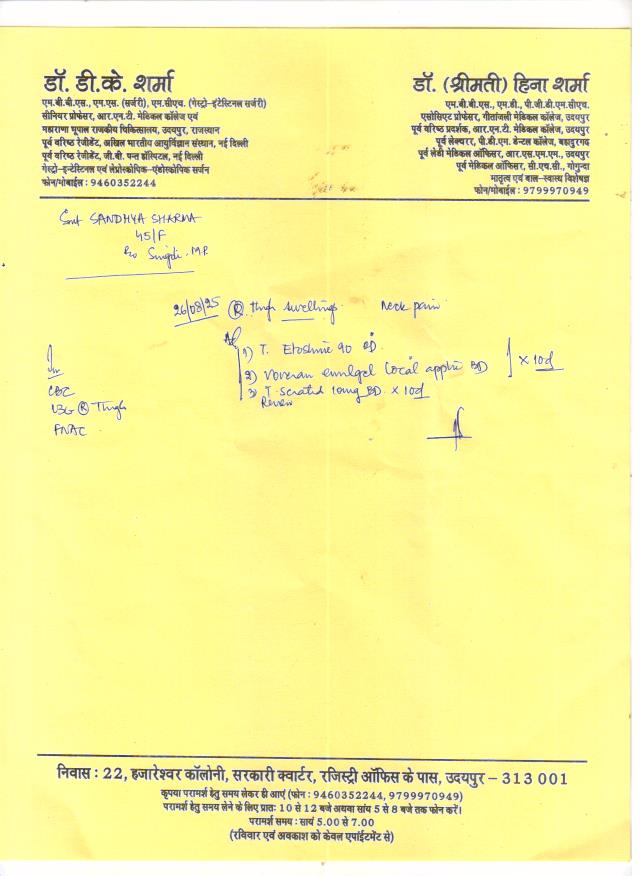 डॉ. डी.के. शर्मा
एम.बी.बी.एस., एम.एस. (सर्जरी), एम.सीएच. (गेस्ट्रो-इंटेस्टिनल सर्जरी)
सीनियर प्रोफेसर, आर.एन.टी. मेडिकल कॉलेज एवं
महाराणा भूपाल राजकीय चिकित्सालय, उदयपुर, राजस्थान
पूर्व वरिष्ठ रेजीडेंट, अखिल भारतीय आयुर्विज्ञान संस्थान, नई दिल्ली
पूर्व वरिष्ठ रेजीडेंट, जी.बी. पन्त हॉस्पिटल, नई दिल्ली
गेस्ट्रो-इन्टेस्टिनल एवं लेप्रोस्कोपिक-एंडोस्कोपिक सर्जन
फोन/मोबाईल : 9460352244
डॉ. (श्रीमती) हिना शर्मा
एम.बी.बी.एस., एम.डी., पी.जी.डी.एम.सीएच.
एसोसिएट प्रोफेसर, गीतांजली मेडिकल कॉलेज, उदयपुर
पूर्व वरिष्ठ प्रदर्शक, आर.एन.टी. मेडिकल कॉलेज, उदयपुर
पूर्व लेक्चरर, पी.डी.एम. डेन्टल कॉलेज, बहादुरगढ़
पूर्व लेडी मेडिकल ऑफिसर, आर.एस.एम.एम., उदयपुर
पूर्व मेडिकल ऑफिसर, सी.एच.सी., गोगुन्दा
मातृत्व एवं बाल-स्वास्थ्य विशेषज्ञ
फोन/मोबाईल : 9799970949
Smt SANDHYA SHARMA
45/F
R/o M.P.
26/08/25 Ⓡ thigh swellings. Neck pain
1) T. Etoshine 90 OD
2) Voveran emulgel local applic BD } x 10d
3) T. 10mg BD. x 10d
Review
Inv
CBC
USG Ⓡ Thigh
FNAC
निवास : 22, हजारेश्वर कॉलोनी, सरकारी क्वार्टर, रजिस्ट्री ऑफिस के पास, उदयपुर – 313 001
कृपया परामर्श हेतु समय लेकर ही आएं (फोन : 9460352244, 9799970949)
परामर्श हेतु समय लेने के लिए प्रातः 10 से 12 बजे अथवा सांय 5 से 8 बजे तक फोन करें।
परामर्श समय : सायं 5.00 से 7.00
(रविवार एवं अवकाश को केवल एपॉईंटमेंट से)